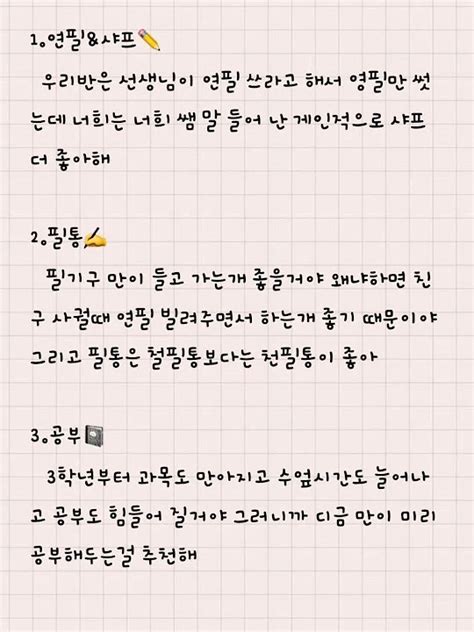 1.연필&샤프✏️
우리반은 선생님이 연필 쓰라고 해서 영필만 썻
는데 너희는 너희 쌤 말 들어 난 게인적으로 샤프
더 좋아해
2.필통✍️
필기구 만이 들고 가는개 좋을거야 왜냐하면 친
구 사귈때 연필 빌려주면서 하는개 좋기 때문이야
그리고 필통은 철필통보다는 천필통이 좋아
3.공부📓
3학년부터 과목도 만아지고 수엎시간도 늘어나
고 공부도 힘들어 질거야 그러니까 디금 만이 미리
공부해두는걸 추천해